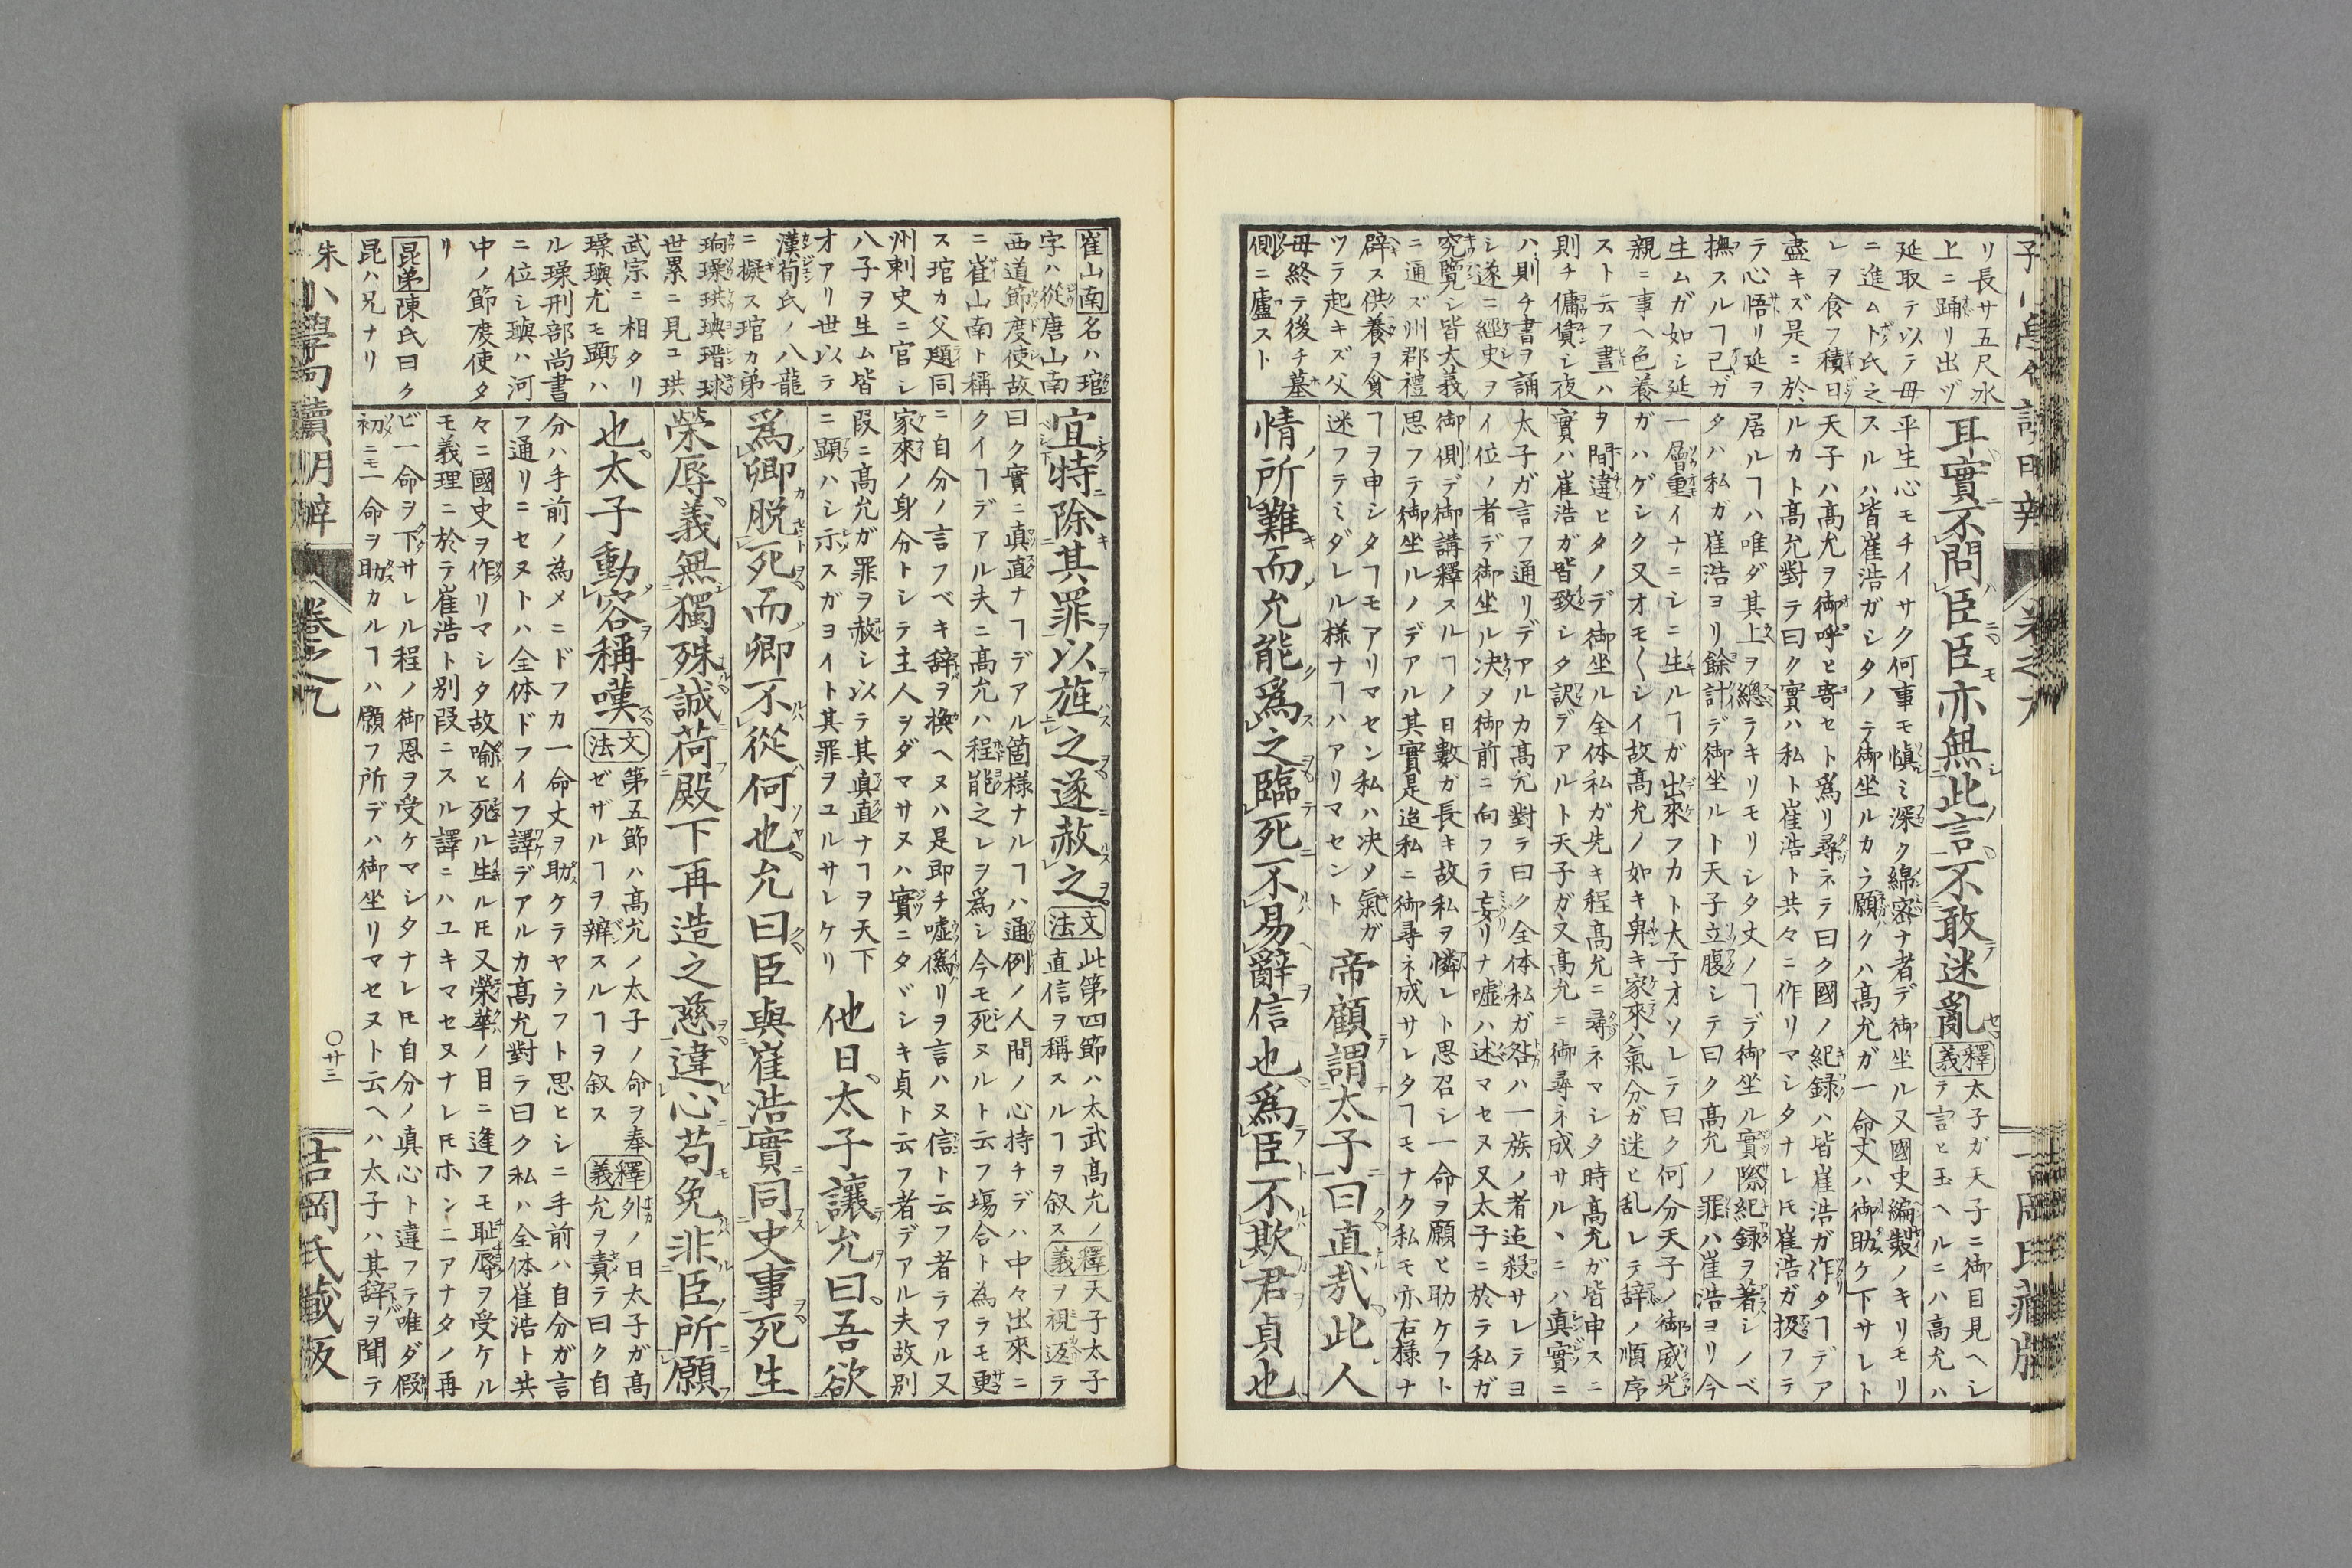 リ長サ五尺氷
上ニ踊リ出ヅ
延取テ以テ母
ニ進ムト氏之
レヲ食フ積日
盡キズ是ニ於
テ心悟リ延ヲ
撫スルヿ己ガ
生ムガ如シ延
親ニ事ヘ色養
スト云フ晝ハ
則チ傭賃シ夜
ハ則チ書ヲ誦
シ遂ニ經史ヲ
究覽シ皆大義
ニ通ズ州郡禮
辟ス供養ヲ貪
ツテ起キズ父
母終テ後チ墓
側ニ廬スト
耳實不問臣臣亦無此言不敢迷亂
釋義
太子ガ天子ニ御目見ヘシ
テ言ヒ玉ヘルニハ高允ハ
平生心モチイサク何事モ愼ミ深ク綿密ナ者デ御坐ル又國史編製ノキリモリ
スルハ皆崔浩ガシタノテ御坐ルカラ願クハ高允ガ一命丈ハ御助ケ下サレト
天子ハ高允ヲ御呼ヒ寄セト爲リ尋ネテ曰ク國ノ紀録ハ皆崔浩ガ作タヿデア
ルカト高允對テ曰ク實ハ私ト崔浩ト共々ニ作リマシタナレ𪜈崔浩ガ扱フテ
居ルヿハ唯ダ其上ヲ總テキリモリシタ丈ノヿデ御坐ル實際紀録ヲ著シノベ
タハ私ガ崔浩ヨリ餘計デ御坐ルト天子立腹シテ曰ク高允ノ罪ハ崔浩ヨリ今
一層重イナニシニ生ルヿガ出來フカト太子オソレテ曰ク何分天子ノ御威光
ガハゲシク又オモ〱シイ故高允ノ如キ卑キ家來ハ氣分ガ迷ヒ乱レテ辞ノ順序
ヲ間違ヒタノデ御坐ル全体私ガ先キ程高允ニ尋ネマシタ時高允ガ皆申スニ
實ハ崔浩ガ皆致シタ訳デアルト天子ガ又高允ニ御尋ネ成サルヽニハ真實ニ
太子ガ言フ通リデアルカ高允對テ曰ク全体私ガ咎ハ一族ノ者迠殺サレテヨ
イ位ノ者デ御坐ル决メ御前ニ向フテ妄リナ嘘ハ述マセヌ又太子ニ於テ私ガ
御側デ御講釋スルヿノ日數ガ長キ故私ヲ憐レト思召シ一命ヲ願ヒ助ケフト
思フテ御坐ルノデアル其實是迠私ニ御尋ネ成サレタヿモナク私モ亦右樣ナ
ヿヲ申シタヿモアリマセン私ハ决メ氣ガ
迷フテミダレル樣ナヿハアリマセント
帝顧謂太子曰直哉此人
情所難而允能爲之臨死不易辭信也爲臣不欺君貞也
崔山南名ハ琯
字ハ從唐山南
西道節度使故
ニ崔山南ト稱
ス琯カ父頲同
州刺史ニ官シ
八子ヲ生ム皆
才アリ世以テ
漢荀氏ノ八龍
ニ擬ス琯カ弟
珦璪珙璵瑨球
世累ニ見ユ珙
武宗ニ相タリ
璪璵尤モ顕ハ
ル璪刑部尚書
ニ位シ璵ハ河
中ノ節度使タ
リ
昆弟陳氏曰ク
昆ハ兄ナリ
宜特除其罪以旌之遂赦之
文法
此第四節ハ太武高允ノ
直信ヲ稱スルヿヲ叙ス
釋義
天子太子
ヲ視返テ
曰ク實ニ真直ナヿデアル箇樣ナルヿハ通例ノ人間ノ心持チデハ中々出來ニ
クイヿデアル夫ニ高允ハ程能之レヲ爲シ今モ死ヌルト云フ場合ト為ラモ更
ニ自分ノ言フベキ辞ヲ換ヘヌハ是即チ嘘僞リヲ言ハヌ信ト云フ者ラアル又
家來ノ身分トシテ主人ヲダマサヌハ實ニタヾシキ貞ト云フ者デアル夫故別
叚ニ高允ガ罪ヲ赦シ以テ其真直ナヿヲ天下
ニ顕ハシ示スガヨイト其罪ヲユルサレケリ
他日太子讓允曰吾欲
爲卿脱死而卿不從何也允曰臣與崔浩實同史事死生
榮辱義無獨殊誠荷殿下再造之慈違心苟免非臣所願
也太子動容稱嘆
文法
第五節ハ高允ノ太子ノ命ヲ奉
ゼザルヿヲ辨スルヿヲ叙ス
釋義
外ノ日太子ガ高
允ヲ責テ曰ク自
分ハ手前ノ為メニドフカ一命丈ヲ助ケラヤラフト思ヒシニ手前ハ自分ガ言
フ通リニセヌトハ全体ドフイフ譯デアルカ高允對テ曰ク私ハ全体崔浩ト共
々ニ國史ヲ作リマシタ故喩ヒ死ル生ル𪜈又榮華ノ目ニ逢フモ耻辱ヲ受ケル
モ義理ニ於テ崔浩ト別叚ニスル譯ニハユキマセヌナレ𪜈ホンニアナタノ再
ビ一命ヲ下サレル程ノ御恩ヲ受ケマシタナレ𪜈自分ノ真心ト違フテ唯ダ假
初ニモ一命ヲ助カルヿハ願フ所デハ御坐リマセヌト云ヘハ太子ハ其辞ヲ聞テ
朱
小學句讀明辨
卷之九
〇廿三
吉岡氏藏版